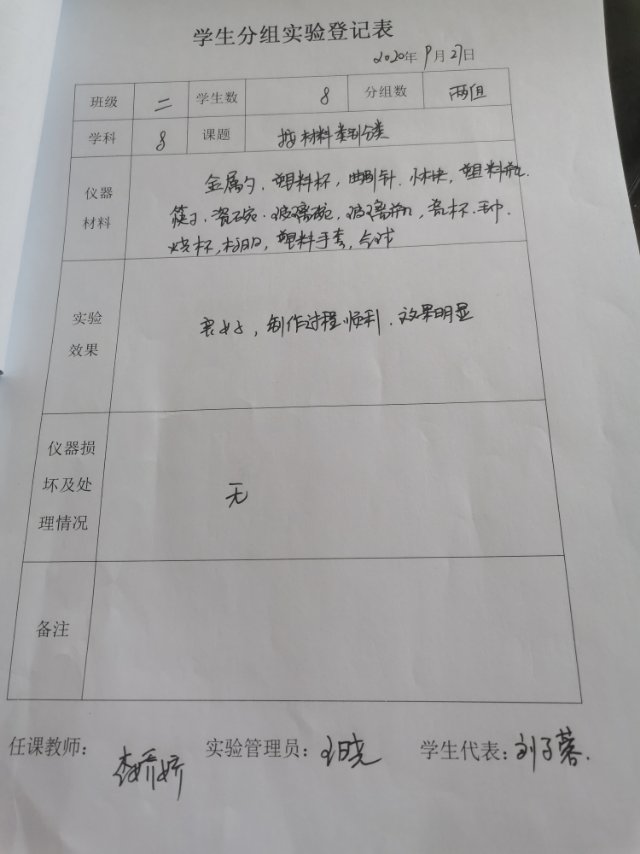 学生分组实验登记表
2020年9月27日
班级 二 学生数 8 分组数 两组
学科 8 课题 按材料类别分类
仪器材料 金属勺.塑料杯,曲别针.木块,塑料瓶.
筷子.瓷碗.玻璃碗,玻璃瓶,瓷杯.毛巾.
烧杯,塑料手套,
实验效果 良好,制作过程顺利.效果明显
仪器损坏及处理情况 无
备注
任课教师: 李娇娇 实验管理员: 王晓 学生代表: 刘子蓉.